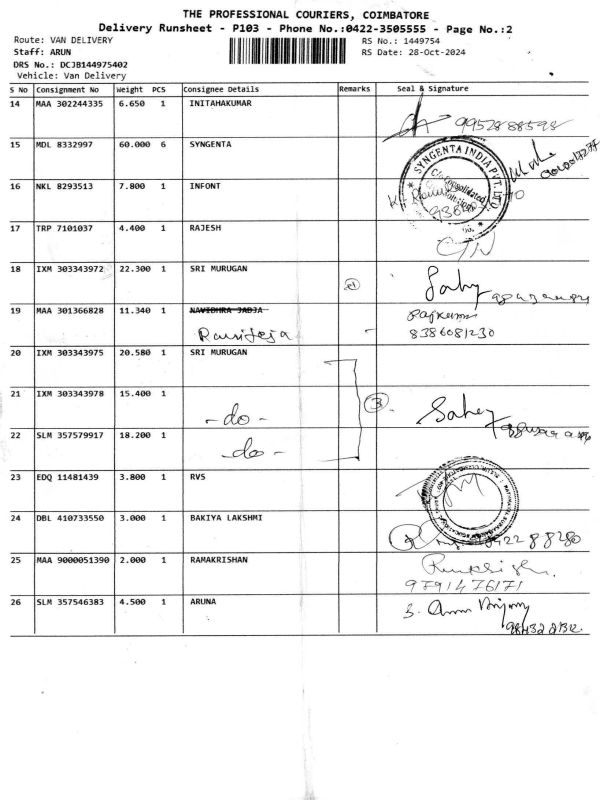 THE PROFESSIONAL COURIERS, COIMBATORE
Delivery Runsheet - P103 - Phone No.:0422-3505555 - Page No.:2
Route: VAN DELIVERY RS No.: 1449754
Staff: ARUN RS Date: 28-Oct-2024
DRS No.: DCJB144975402
Vehicle: Van Delivery
S No Consignment No Weight PCS Consignee Details Remarks Seal & Signature
14 MAA 302244335 6.650 1 INITAHAKUMAR
9952888598
15 MDL 8332997 60.000 6 SYNGENTA
SYNGENTA INDIA PVT. LTD.
16 NKL 8293513 7.800 1 INFONT
17 TRP 7101037 4.400 1 RAJESH
18 IXM 303343972 22.300 1 SRI MURUGAN
19 MAA 301366828 11.340 1 NAVIDHRA JADJA
Rajkumar
8386081230
20 IXM 303343975 20.580 1 SRI MURUGAN
21 IXM 303343978 15.400 1
- do -
3
22 SLM 357579917 18.200 1
- do -
23 EDQ 11481439 3.800 1 RVS
24 DBL 410733550 3.000 1 BAKIYA LAKSHMI
25 MAA 9000051390 2.000 1 RAMAKRISHAN
9791476171
26 SLM 357546383 4.500 1 ARUNA